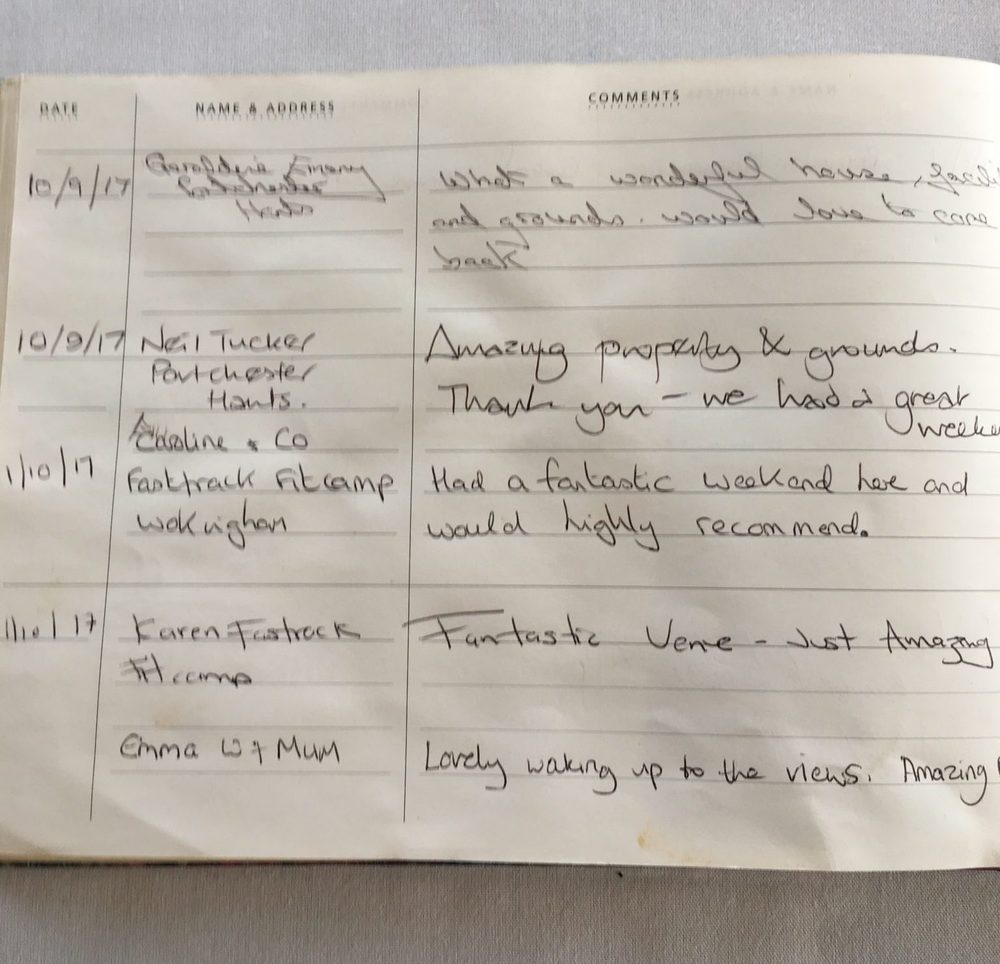 DATE NAME & ADDRESS COMMENTS
10/9/17 Geraldine Emery What a wonderful house,
Portchester and grounds. would love to come
Hants back
10/9/17 Neil Tucker Amazing property & grounds.
Portchester Thank you - we had a great
Hants.
Caroline & Co
1/10/17 Fasttrack Fitcamp Had a fantastic weekend here and
Wokingham would highly recommend.
1/10/17 Karen Fastrack Fantastic Venue - Just Amazing
Fitcamp
Emma W & Mum Lovely waking up to the views. Amazing